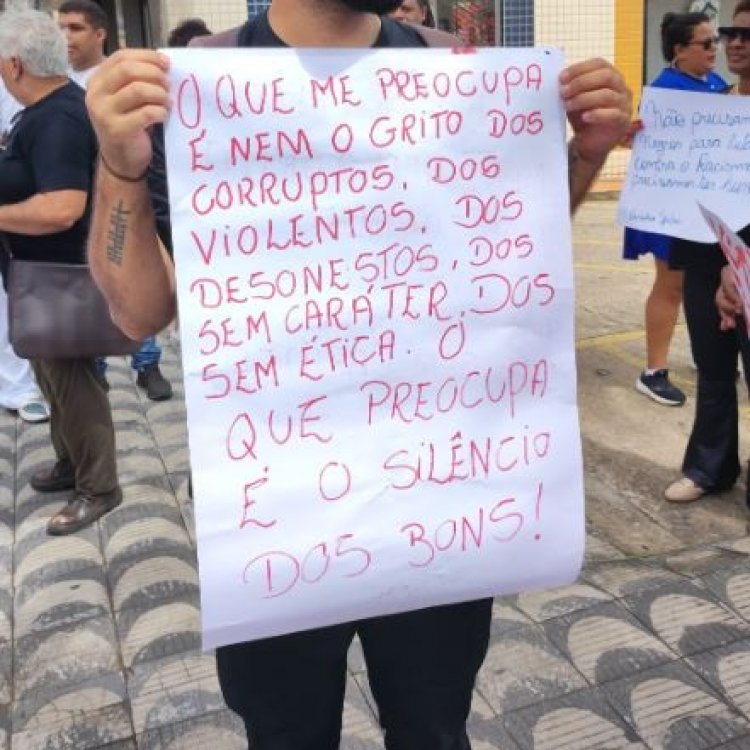 O QUE ME PREOCUPA
É NEM O GRITO DOS
CORRUPTOS, DOS
VIOLENTOS, DOS
DESONESTOS, DOS
SEM CARÁTER, DOS
SEM ÉTICA. O
QUE PREOCUPA
É O SILÊNCIO
DOS BONS!
Não precisam
Negros para
contra o Racismo
precisamos ser